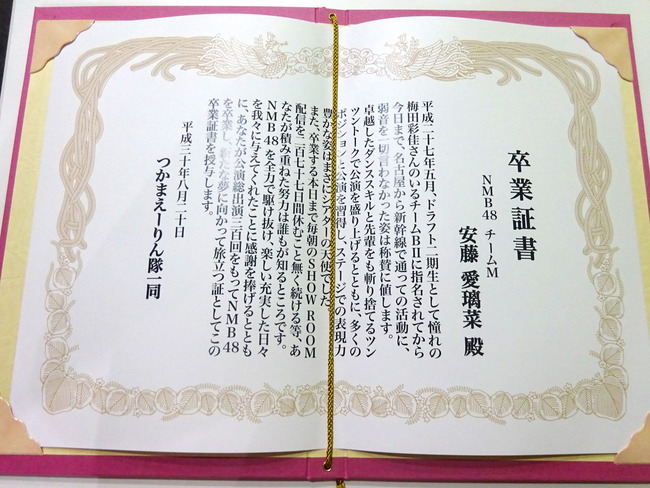 卒業証書
NMB48 チームM
安藤 愛璃菜 殿
平成二十七年五月、ドラフト二期生として憧れの
梅田彩佳さんのいるチームBⅡに指名されてから
今日まで、名古屋から新幹線で通っての活動に、
弱音を一切言わなかった姿は称賛に値します。
卓越したダンススキルと先輩をも斬り捨てるツン
ツントークで公演を盛り上げるとともに、多くの
ポジションと公演を習得し、ステージでの表現力
豊かな姿はまさにシアターの天使でした
また、卒業する本日まで毎朝のSHOWROOM
配信を二百七十七日間休むこと無く続ける等、あ
なたが積み重ねた努力は誰もが知るところです。
NMB48を全力で駆け抜け、楽しい充実した日々
を我々に与えてくれたことに感謝を捧げるととも
に、あなたが公演総出演三百回をもってNMB48
を卒業し、新たな夢に向かって旅立つ証としてこの
卒業証書を授与します。
平成三十年八月二十日
つかまえーりん隊一同